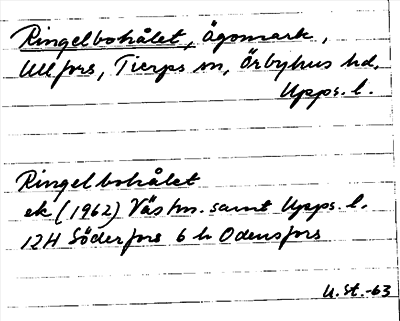 Ringelbohålet, ägomark,
Ullfors, Tierps sn, Örbyhus hd,
Upps. l.
Ringelbohålet
ek (1962) Västm. samt Upps. l.
12H Söderfors 6 h Odensfors
U.St.-63